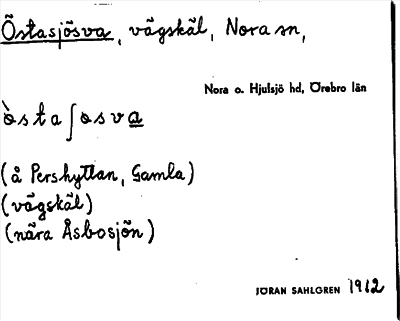 Östasjösva, vägskäl, Nora sn,
Nora o. Hjulsjö hd, Örebro län
ὸsta∫osva
(å Pershyttan, Gamla)
(vägskäl)
(nära Åsbosjön)
JÖRAN SAHLGREN 1912